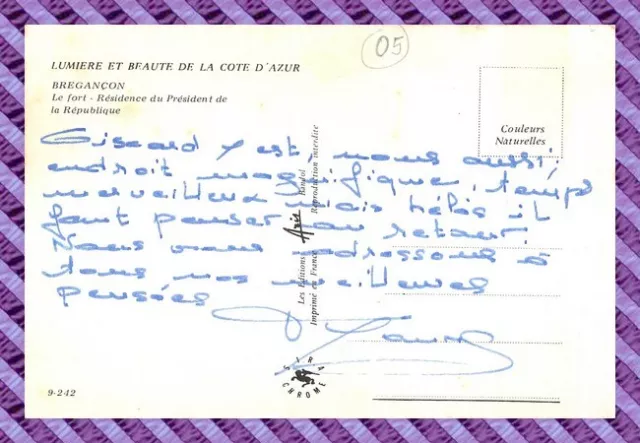 05
LUMIERE ET BEAUTE DE LA COTE D'AZUR
BREGANÇON
Le fort - Résidence du Président de
la République
Couleurs
Naturelles
Giscard y est, nous aussi,
endroit magnifique, temps
merveilleux mais hélas il
faut penser au retour.
Nous vous adressons à
tous nos meilleures
pensées
Les Editions Aris Bandol
Imprimé en France Reproduction interdite
SYRA CHROME
9-242